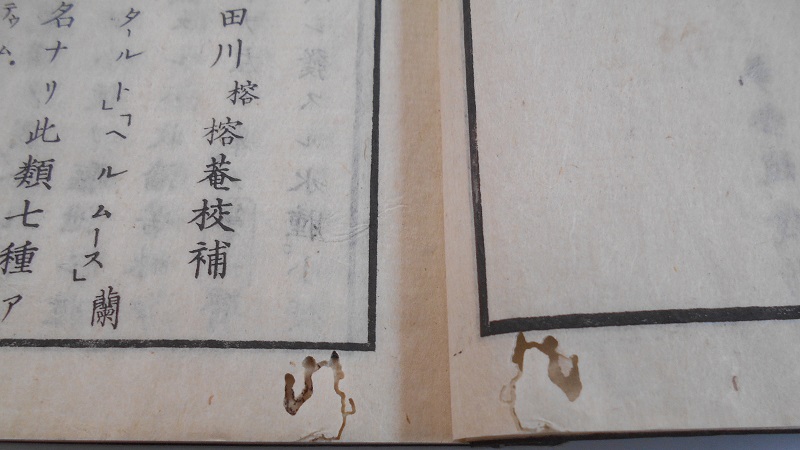 田川榕榕菴校補
タールト」「ヘルムース」蘭
名ナリ此類七種ア
テウム。